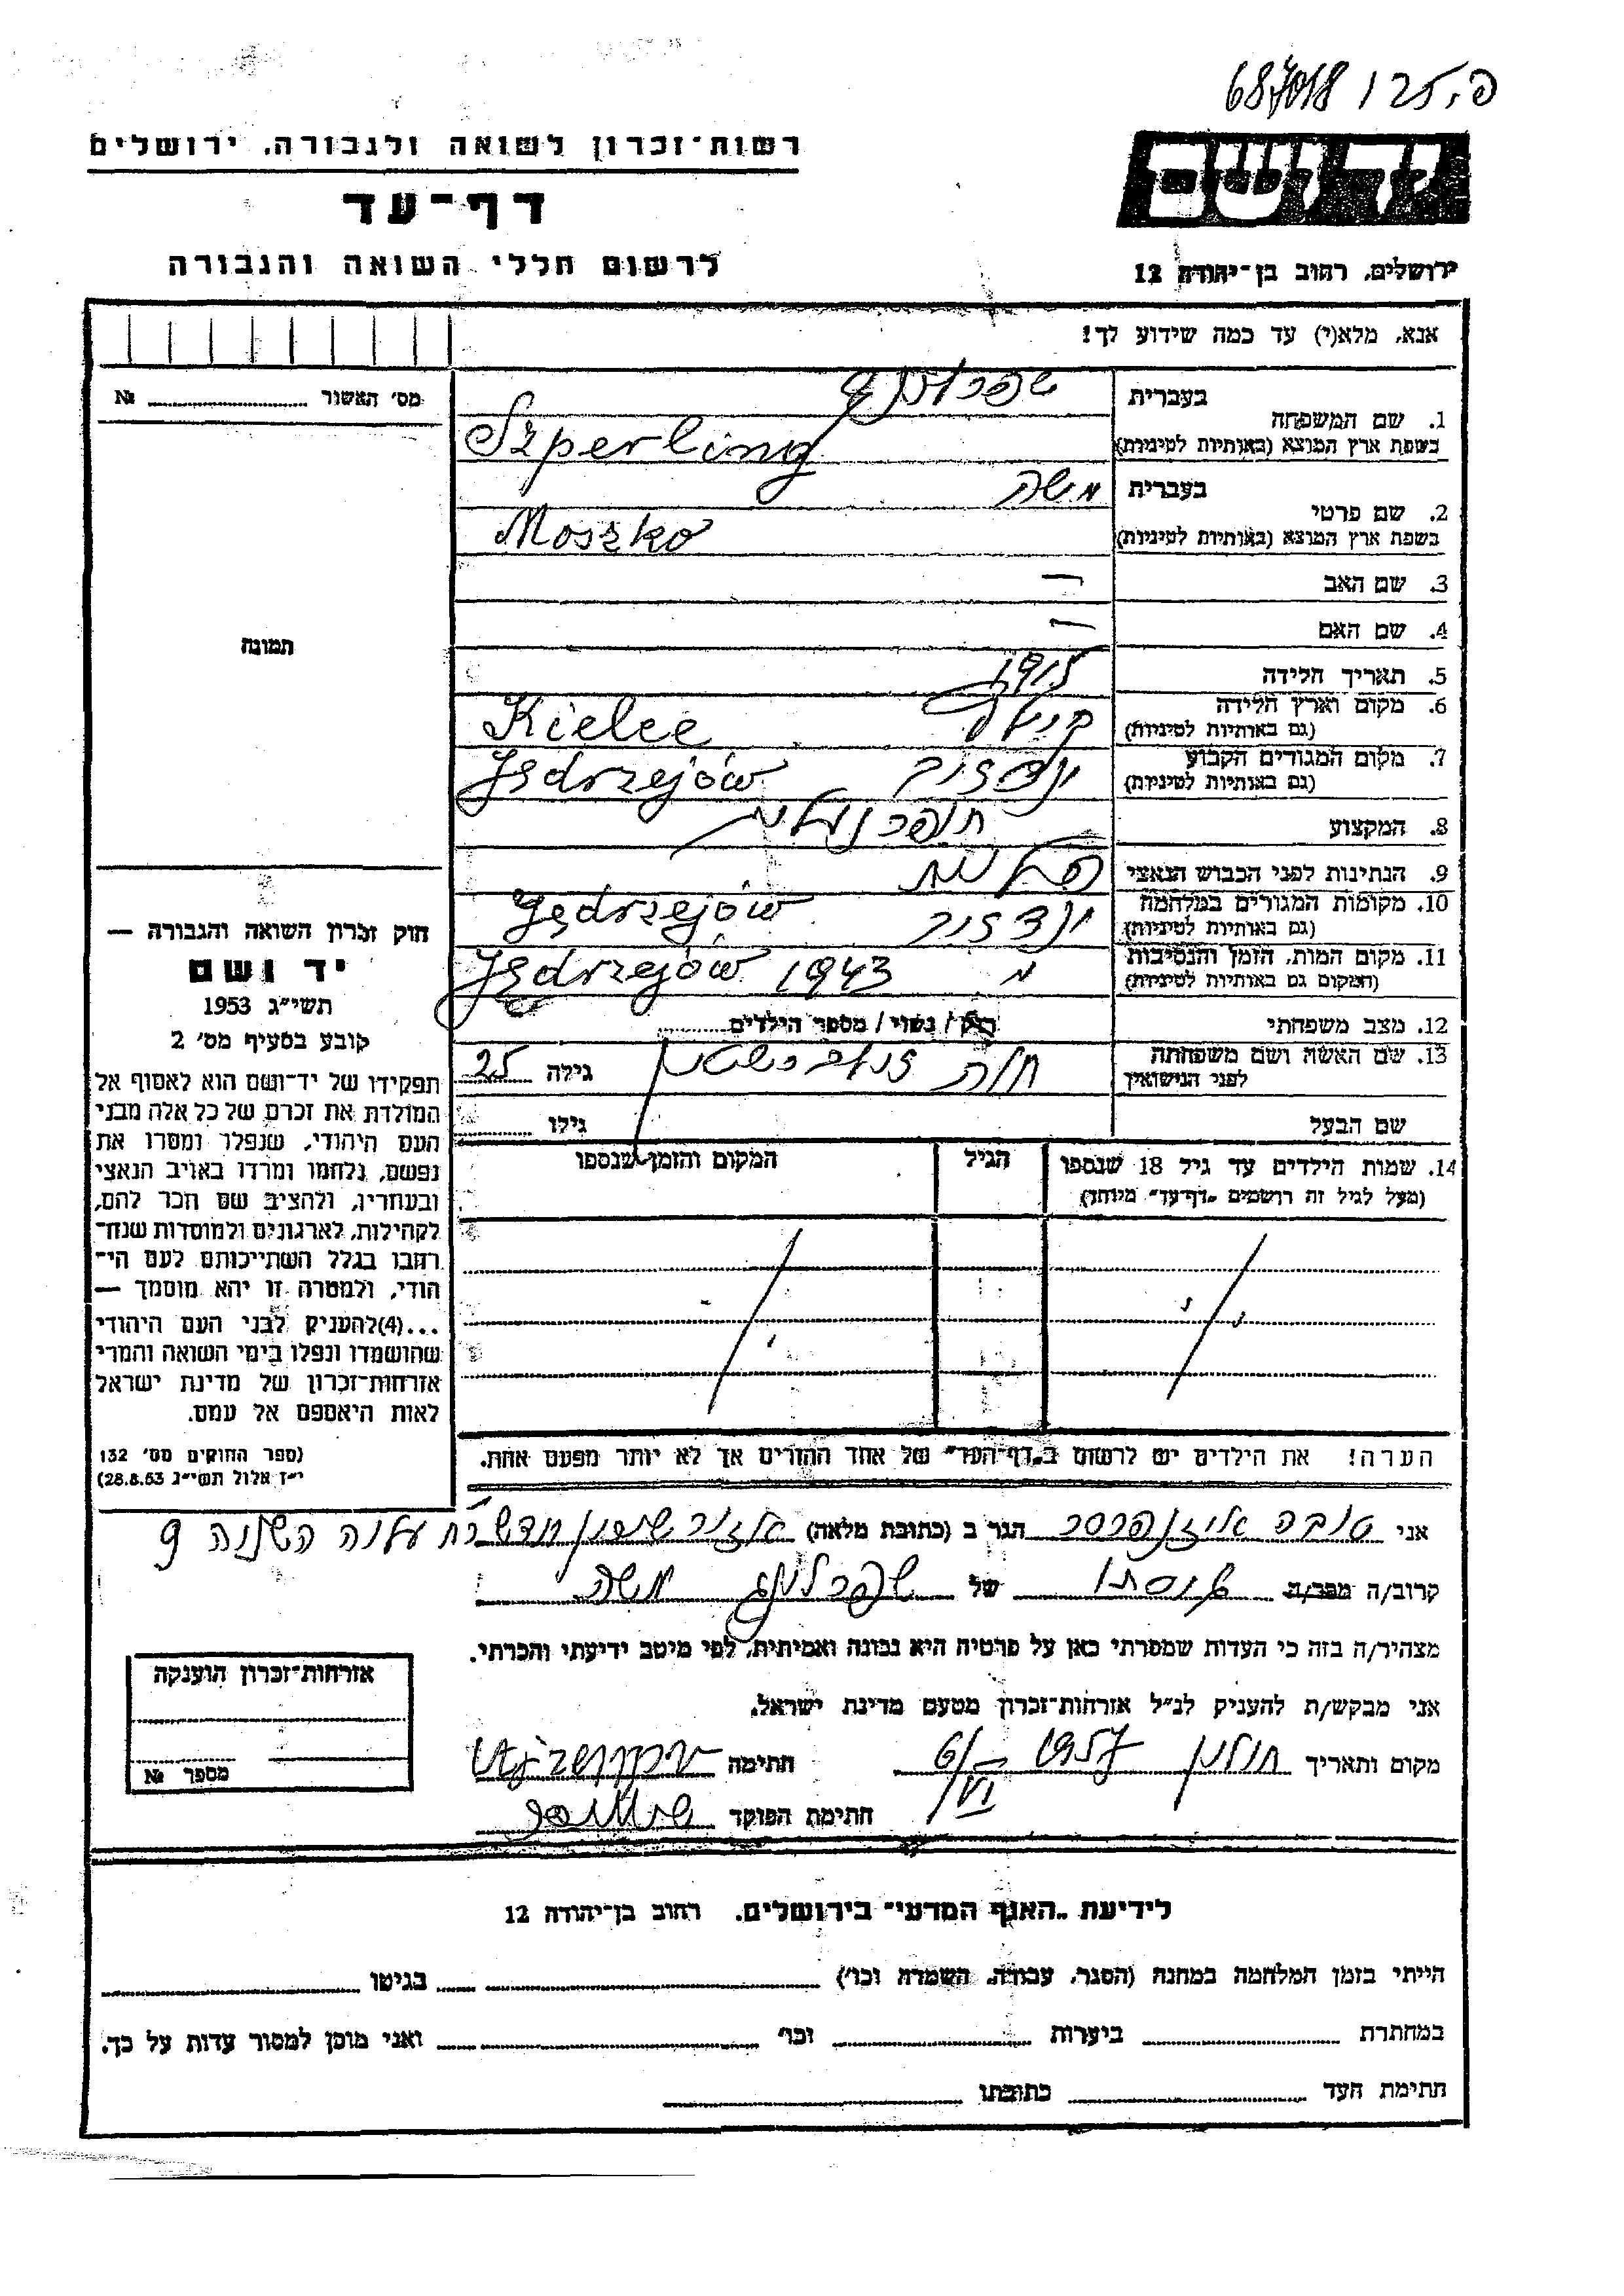 687018 / 25.פ
רשות־זכרון לשואה ולגבורה, ירושלים
דף־עד
לרשום חללי השואה והגבורה
ידושם
ירושלים, רחוב בן־יהודה 12
אנא, מלא(י) עד כמה שידוע לך!
מס' האשור № 
תמונה
1. שם המשפחה
בעברית שפרלינג
בשפת ארץ המוצא (באותיות לטיניות) Szperling
2. שם פרטי
בעברית משה
בשפת ארץ המוצא (באותיות לטיניות) Moszko
3. שם האב —
4. שם האם —
5. תאריך הלידה 1915
6. מקום וארץ הלידה
(גם באותיות לטיניות) Kielce
7. מקום המגורים הקבוע
(גם באותיות לטיניות) Jędrzejów
8. המקצוע
9. הנתינות לפני הכבוש הנאצי
10. מקומות המגורים במלחמה
(גם באותיות לטיניות) Jędrzejów
11. מקום המות, הזמן והנסיבות
(המקום גם באותיות לטיניות) Jędrzejów 1943
12. מצב משפחתי רוק / נשוי / מספר הילדים
13. שם האשה ושם משפחתה
לפני הנישואין גילה 25
שם הבעל גילו
14. שמות הילדים עד גיל 18 שנספו הגיל המקום והזמן שנספו
(מעל לגיל זה רושמים „דף־עד" מיוחד)
הערה! את הילדים יש לרשום ב„דף־העד" של אחד ההורים אך לא יותר מפעם אחת.
חוק זכרון השואה והגבורה —
יד ושם
תשי"ג 1953
קובע בסעיף מס' 2
תפקידו של יד־ושם הוא לאסוף אל
המולדת את זכרם של כל אלה מבני
העם היהודי, שנפלו ומסרו את
נפשם, נלחמו ומרדו באויב הנאצי
ובעוזריו, ולהציב שם וזכר להם,
לקהילות, לארגונים ולמוסדות שנח־
רבו בגלל השתייכותם לעם הי־
הודי, ולמטרה זו יהא מוסמך —
...(4)להעניק לבני העם היהודי
שהושמדו ונפלו בימי השואה והמרי
אזרחות־זכרון של מדינת ישראל
לאות היאספם אל עמם.
(ספר החוקים מס' 132
י"ז אלול תשי"ג 28.8.53)
אני טובה אייזנפרסר הגר ב (כתובת מלאה)
קרוב/ה מכר/ה של שפרלינג משה
מצהיר/ה בזה כי העדות שמסרתי כאן על פרטיה היא נכונה ואמיתית, לפי מיטב ידיעתי והכרתי.
אני מבקש/ת להעניק לנ"ל אזרחות־זכרון מטעם מדינת ישראל.
מקום ותאריך חולון 1957 6/VI חתימה
חתימת הפוקד
אזרחות־זכרון הוענקה
מספר №
לידיעת „האגף המדעי" בירושלים. רחוב בן־יהודה 12
הייתי בזמן המלחמה במחנה (הסגר, עבודה, השמדה וכו') בגיטו
במחתרת ביערות וכו' ואני מוכן למסור עדות על כך.
חתימת העד כתובתו